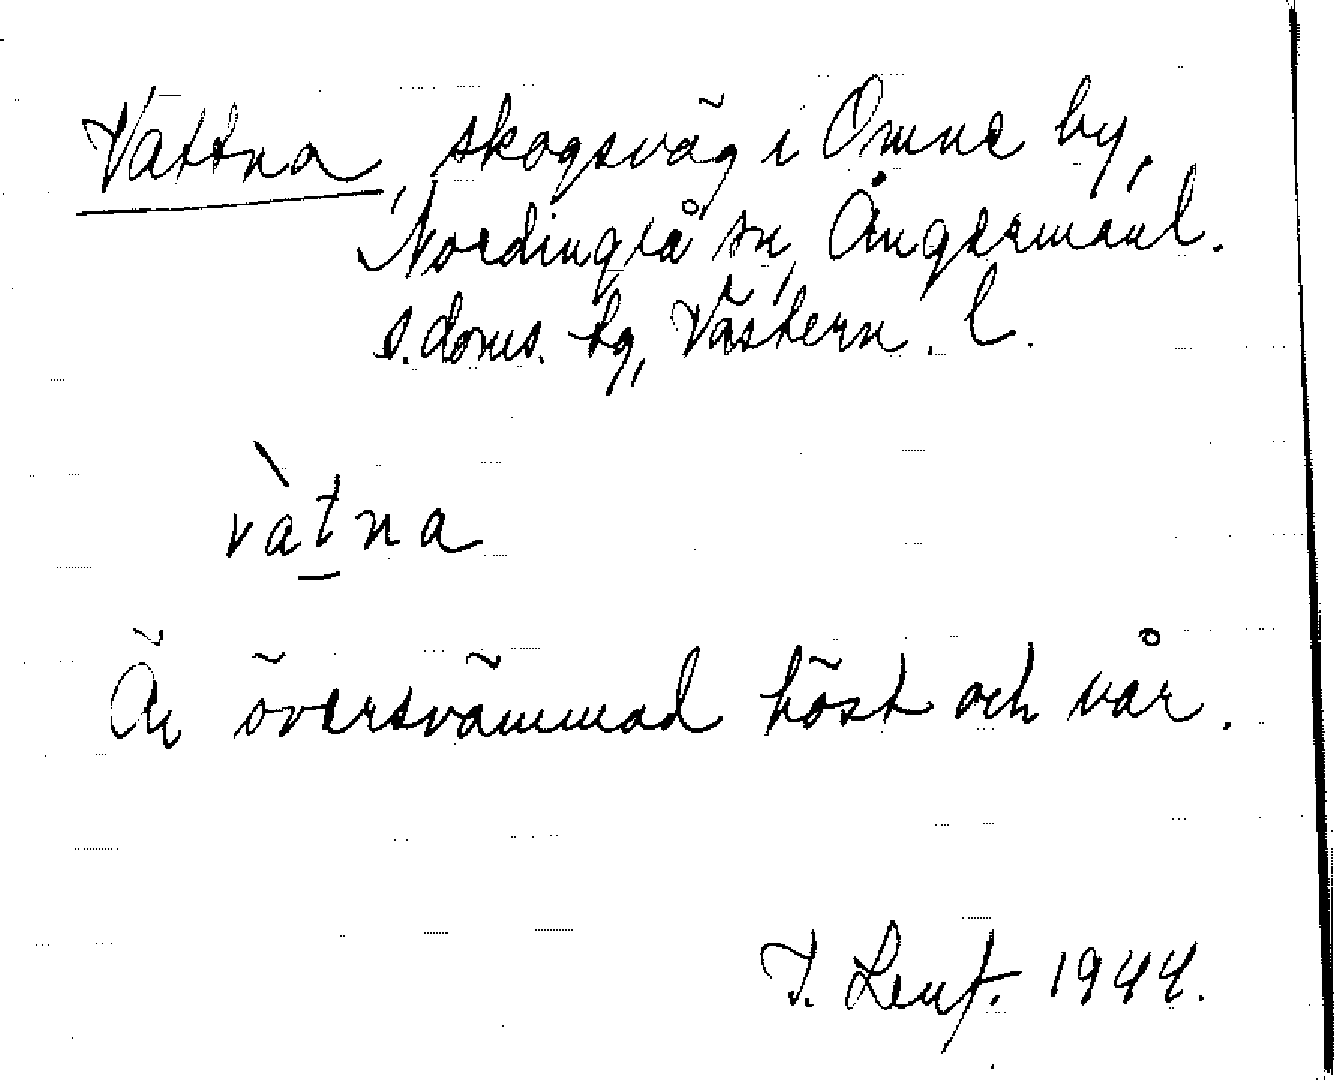 Vattna, skogsväg i Omne by,
Nordingrå sn, Ångermanl.
s. doms. hg, Västern. l.
vàtna
Är översvämmad höst och vår.
T. Lenf. 1944.